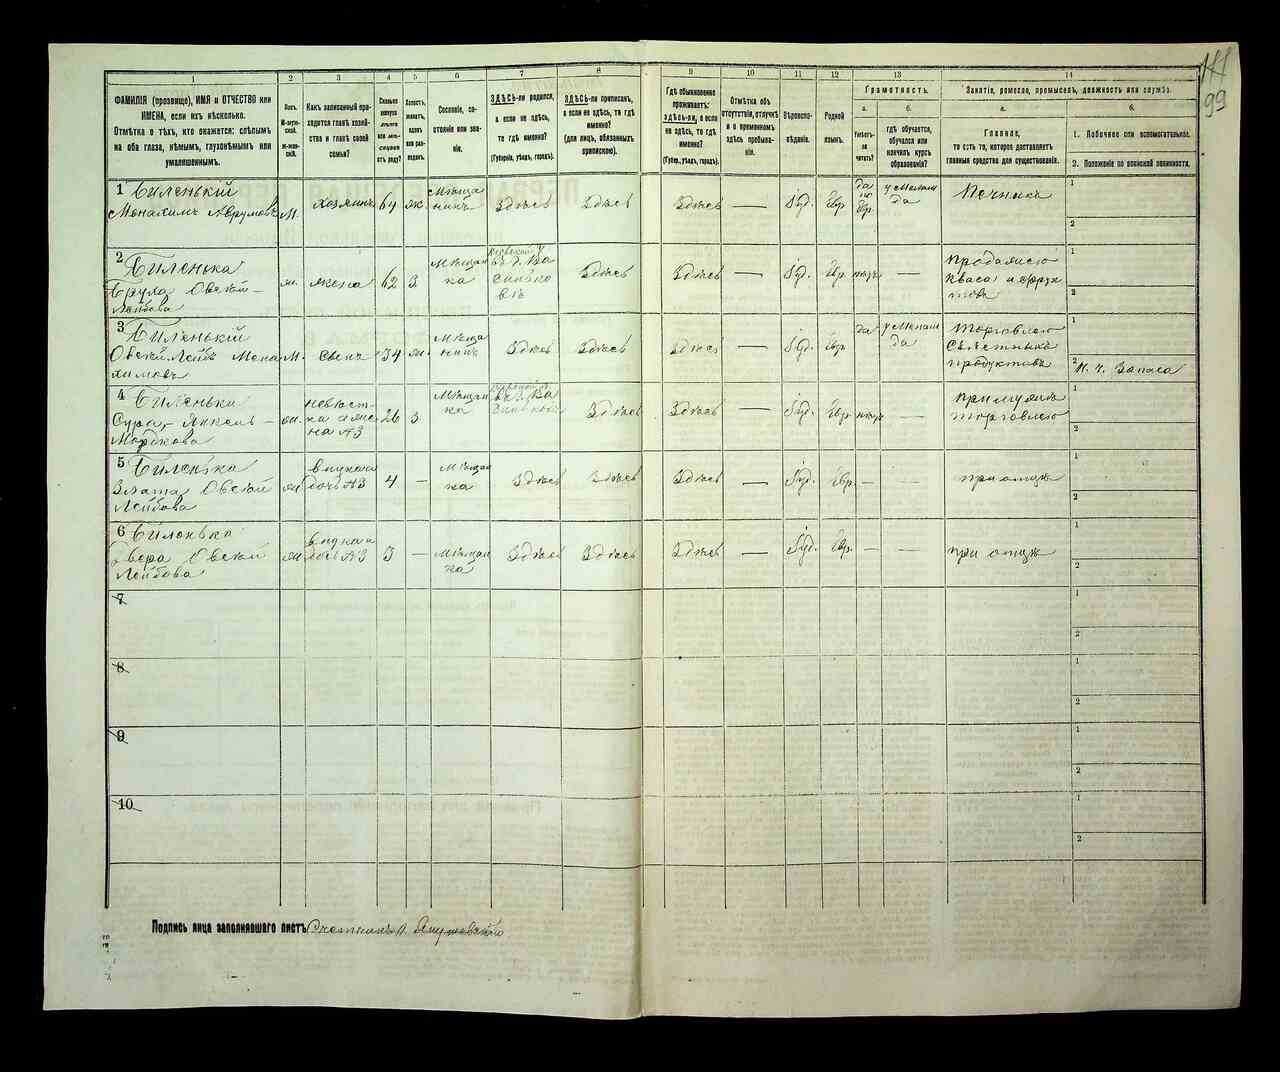 99
1 2 3 4 5 6 7 8 9 10 11 12 13 14
ФАМИЛІЯ (прозвище), ИМЯ и ОТЧЕСТВО или
ИМЕНА, если ихъ нѣсколько.
Отмѣтка о тѣхъ, кто окажется: слѣпымъ
на оба глаза, нѣмымъ, глухонѣмымъ или
умалишеннымъ.
Полъ.
М-мужской.
Ж-женскій.
Какъ записанный приходится главѣ хозяйства и главѣ своей
семьи?
Сколько
минуло
лѣтъ
или мѣсяцевъ
отъ роду?
Холостъ,
женатъ,
вдовъ
или разведенъ.
Сословіе, состояніе или званіе.
ЗДѢСЬ-ли родился,
а если не здѣсь,
то гдѣ именно?
(Губернія, уѣздъ, городъ).
ЗДѢСЬ-ли приписанъ,
а если не здѣсь, то гдѣ
именно?
(для лицъ, обязанныхъ
припискою).
Гдѣ обыкновенно
проживаетъ:
здѣсь-ли, а если
не здѣсь, то гдѣ
именно?
(Губернія, уѣздъ, городъ).
Отмѣтка объ
отсутствіи, отлучкѣ
и о временномъ
здѣсь пребываніи.
Вѣроисповѣданіе.
Родной
языкъ.
Грамотность.
а.
Умѣетъ-ли
читать?
б.
гдѣ обучается,
обучался или
кончилъ курсъ
образованія?
Занятіе, ремесло, промыселъ, должность или служба.
а.
Главное,
то есть то, которое доставляетъ
главныя средства для существованія.
б.
1. Побочное или вспомогательное.
2. Положеніе по воинской повинности.
1 Биленькій
Монахимъ Аврумовъ М. Хозяинъ 64 ж Мѣщанинъ Здѣсь Здѣсь Здѣсь — Іуд. Евр. да по Евр. у Мелам да Печникъ
1
2
2 Биленька
Брула Овсей-
Лейбова ж. жена 62 З Мѣщанка Кіевской г. въ г. Василькове Здѣсь Здѣсь — Іуд. Евр. нѣтъ — Продажею
кваса и фруктовъ
1
2
3 Биленькій
Овсей Лейбъ Монахимовъ М. Сынъ 34 ж. Мѣщанинъ Здѣсь Здѣсь Здѣсь — Іуд. Евр. да у Мелам да Торговлею
Съѣстныхъ
продуктовъ
1
2 Н. ч. Запаса
4 Биленька
Сура-Янкель-
Мордкова ж. невѣстка жена № 3 26 З Мѣщанка Кіевской г. въ г. Василькове Здѣсь Здѣсь — Іуд. Евр. нѣтъ — при мужѣ
торговлею
1
2
5 Биленька
Злата Овсей
Лейбова ж. внучка дочь № 3 4 — Мѣщанка Здѣсь Здѣсь Здѣсь — Іуд. Евр. — — при отцѣ
1
2
6 Биленька
Двера Овсей
Лейбова ж. внучка дочь № 3 3 — Мѣщанка Здѣсь Здѣсь Здѣсь — Іуд. Евр. — — при отцѣ
1
2
7
1
2
8
1
2
9
1
2
10
1
2
Подпись лица заполнявшаго листъ Счетчикъ